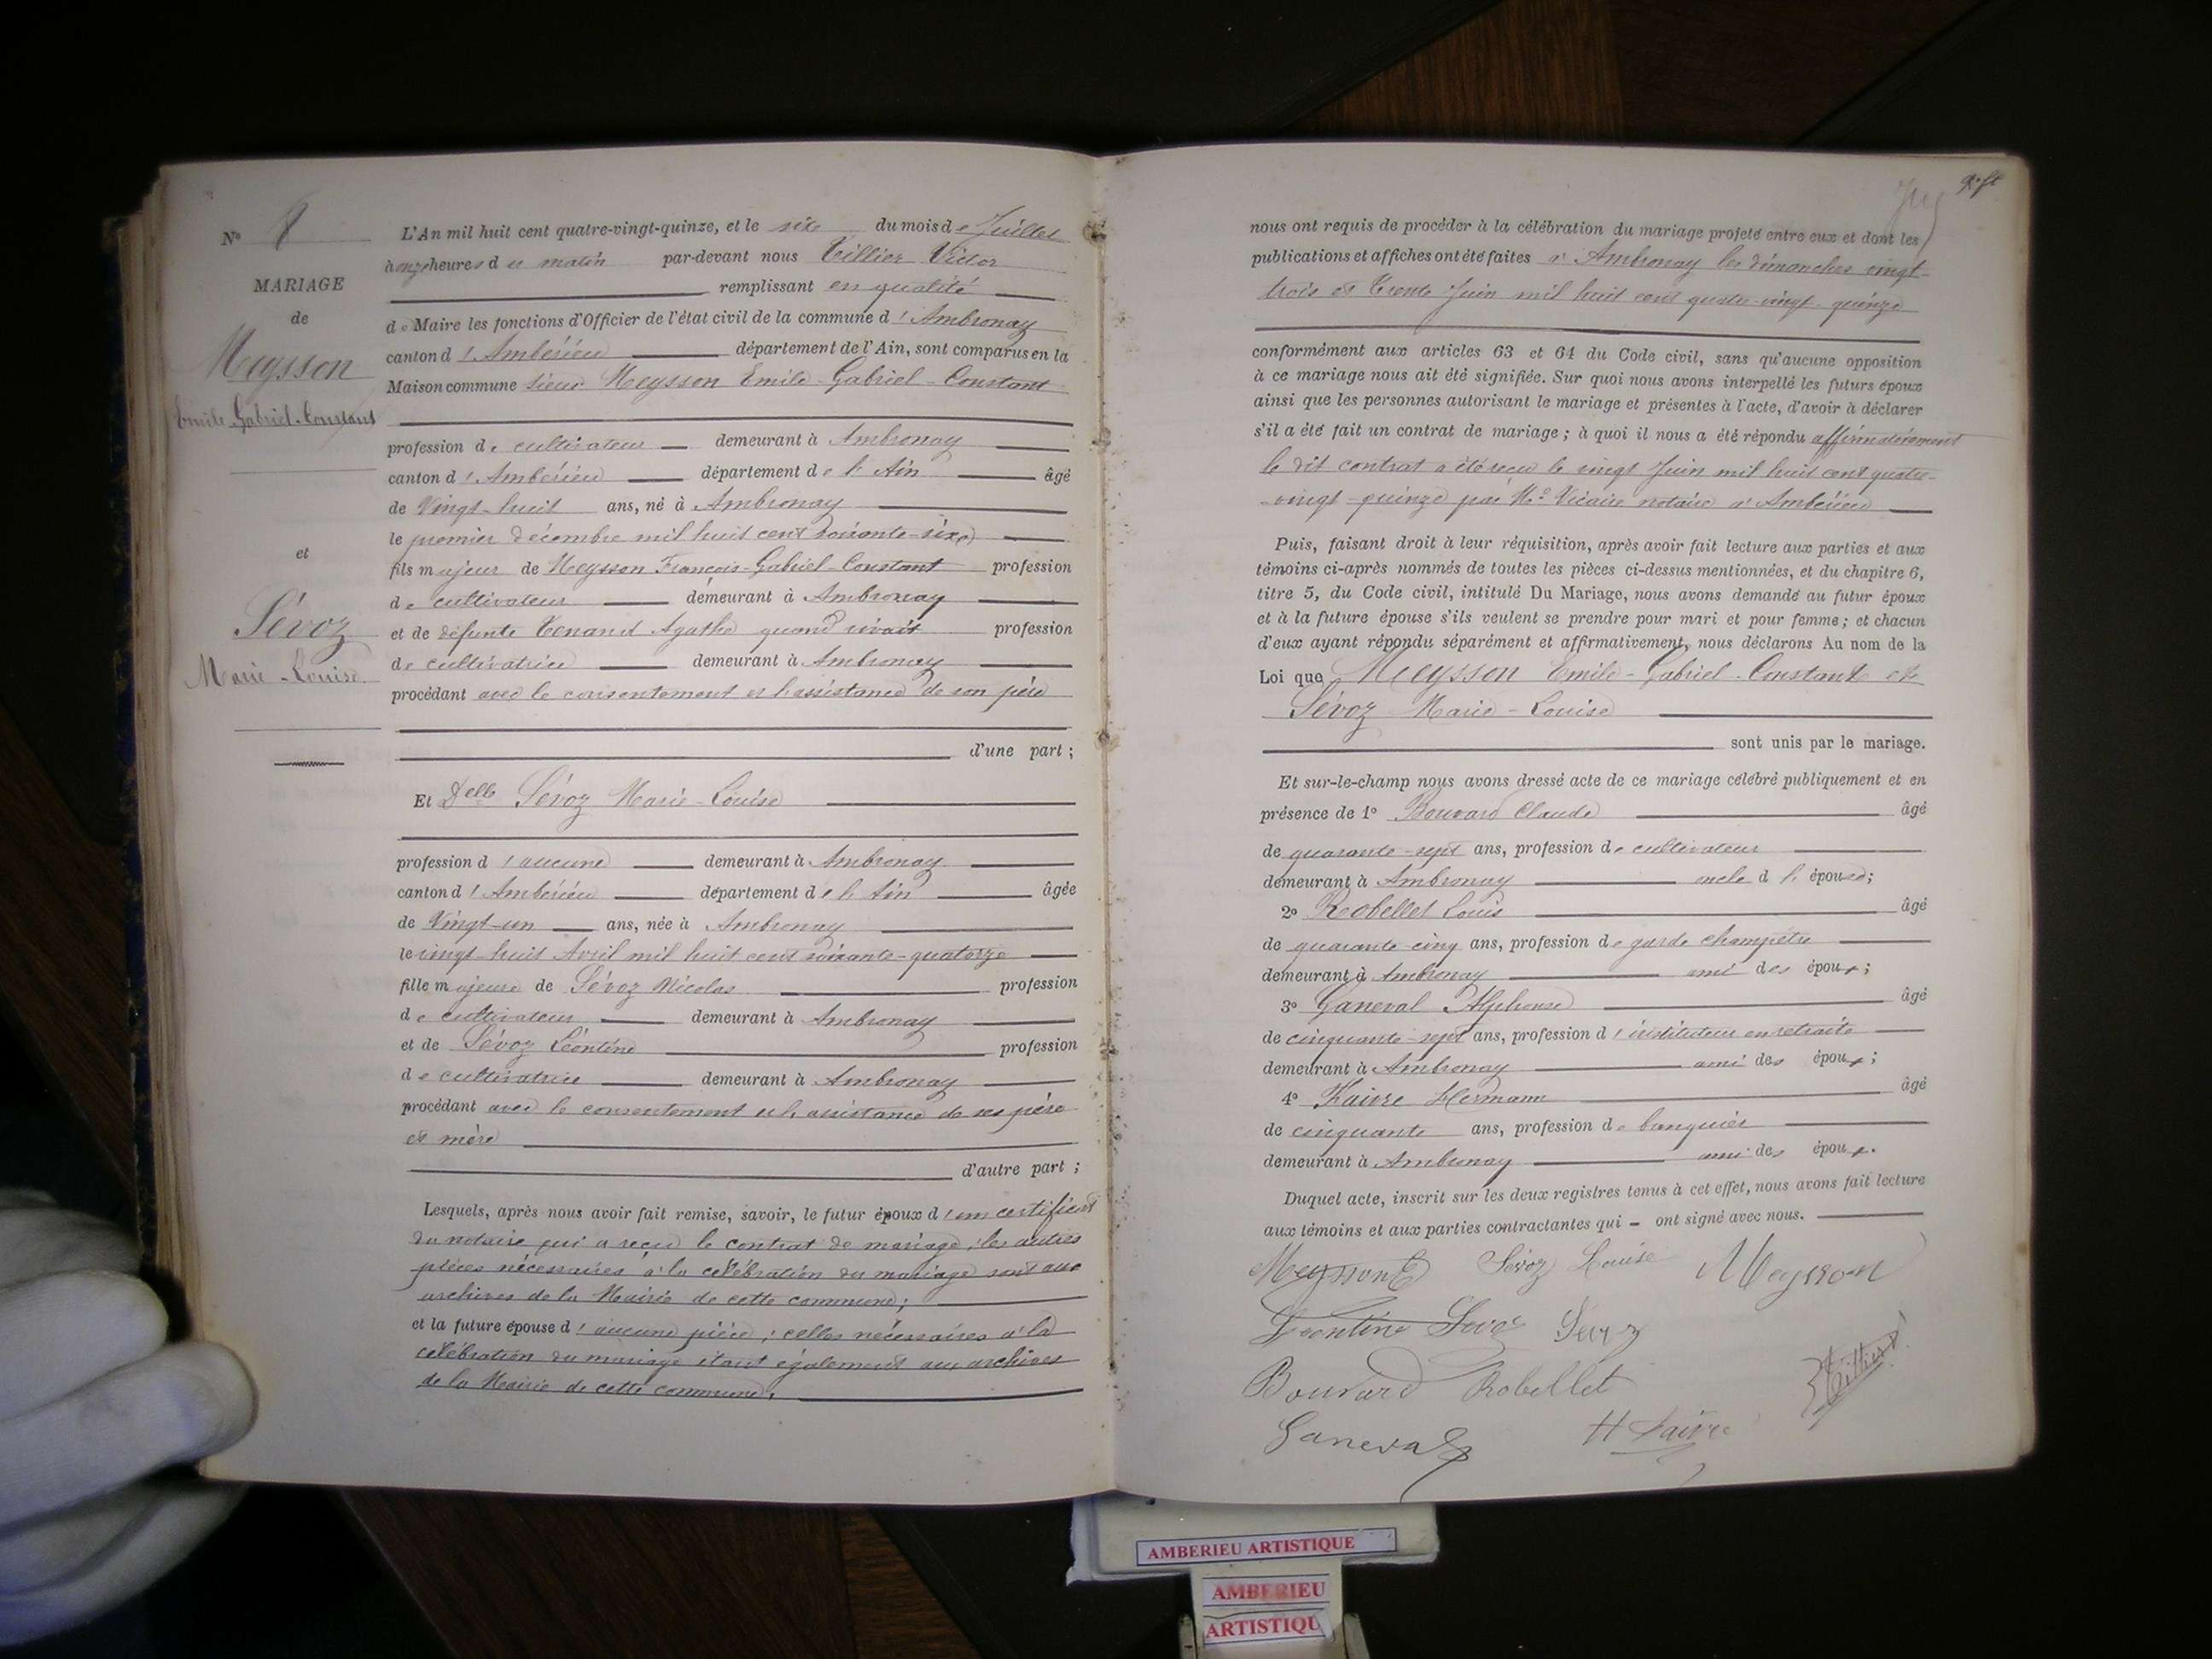 N° 8
MARIAGE
de
Meysson
Emile-Gabriel-Constant
et
Sévoz
Marie-Louise
L'An mil huit cent quatre-vingt-quinze, et le six du mois de Juillet
à onze heures du matin par-devant nous Tillier Victor
remplissant en qualité
de Maire les fonctions d'Officier de l'état civil de la commune d'Ambronay
canton d'Ambérieu département de l'Ain, sont comparus en la
Maison commune sieur Meysson Emile-Gabriel-Constant
profession de cultivateur demeurant à Ambronay
canton d'Ambérieu département de l'Ain âgé
de Vingt-huit ans, né à Ambronay
le premier décembre mil huit cent soixante-six
fils majeur de Meysson François-Gabriel-Constant profession
de cultivateur demeurant à Ambronay
et de défunte Tenand Agathe quand vivait profession
de cultivatrice demeurant à Ambronay
procédant avec le consentement et l'assistance de son père
d'une part ;
Et Delle Sévoz Marie-Louise
profession d'aucune demeurant à Ambronay
canton d'Ambérieu département de l'Ain âgée
de Vingt-un ans, née à Ambronay
le vingt-huit Avril mil huit cent soixante-quatorze
fille majeure de Sévoz Nicolas profession
de cultivateur demeurant à Ambronay
et de Sévoz Léontine profession
de cultivatrice demeurant à Ambronay
procédant avec le consentement et l'assistance de ses père
et mère
d'autre part ;
Lesquels, après nous avoir fait remise, savoir, le futur époux d'un certificat
du notaire qui a reçu le contrat de mariage ; les autres
pièces nécessaires à la célébration du mariage sont aux
archives de la Mairie de cette commune ;
et la future épouse d'aucune pièce ; celles nécessaires à la
célébration du mariage étant également aux archives
de la Mairie de cette commune ;
nous ont requis de procéder à la célébration du mariage projeté entre eux et dont les
publications et affiches ont été faites à Ambronay les dimanches vingt-
trois et trente Juin mil huit cent quatre-vingt-quinze
conformément aux articles 63 et 64 du Code civil, sans qu'aucune opposition
à ce mariage nous ait été signifiée. Sur quoi nous avons interpellé les futurs époux
ainsi que les personnes autorisant le mariage et présentes à l'acte, d'avoir à déclarer
s'il a été fait un contrat de mariage ; à quoi il nous a été répondu affirmativement
le dit contrat a été reçu le vingt Juin mil huit cent quatre-
vingt-quinze par Me Vicaire notaire à Ambérieu
Puis, faisant droit à leur réquisition, après avoir fait lecture aux parties et aux
témoins ci-après nommés de toutes les pièces ci-dessus mentionnées, et du chapitre 6,
titre 5, du Code civil, intitulé Du Mariage, nous avons demandé au futur époux
et à la future épouse s'ils veulent se prendre pour mari et pour femme ; et chacun
d'eux ayant répondu séparément et affirmativement, nous déclarons Au nom de la
Loi que Meysson Emile-Gabriel-Constant et
Sévoz Marie-Louise
sont unis par le mariage.
Et sur-le-champ nous avons dressé acte de ce mariage célébré publiquement et en
présence de 1° Bouvard Claude âgé
de quarante-sept ans, profession de cultivateur
demeurant à Ambronay oncle de l'épouse ;
2° Robellet Louis âgé
de quarante-cinq ans, profession de garde champêtre
demeurant à Ambronay ami des époux ;
3° Ganeval Alphonse âgé
de cinquante-sept ans, profession d'instituteur en retraite
demeurant à Ambronay ami des époux ;
4° Faivre Hermann âgé
de cinquante ans, profession de banquier
demeurant à Ambronay ami des époux.
Duquel acte, inscrit sur les deux registres tenus à cet effet, nous avons fait lecture
aux témoins et aux parties contractantes qui - ont signé avec nous.
Meysson E Sévoz Louise Meysson
Leontine Sevoz Sevoz
Bouvard Robellet Tillier
Ganeval H Faivre
AMBERIEU ARTISTIQUE
AMBERIEU
ARTISTIQU